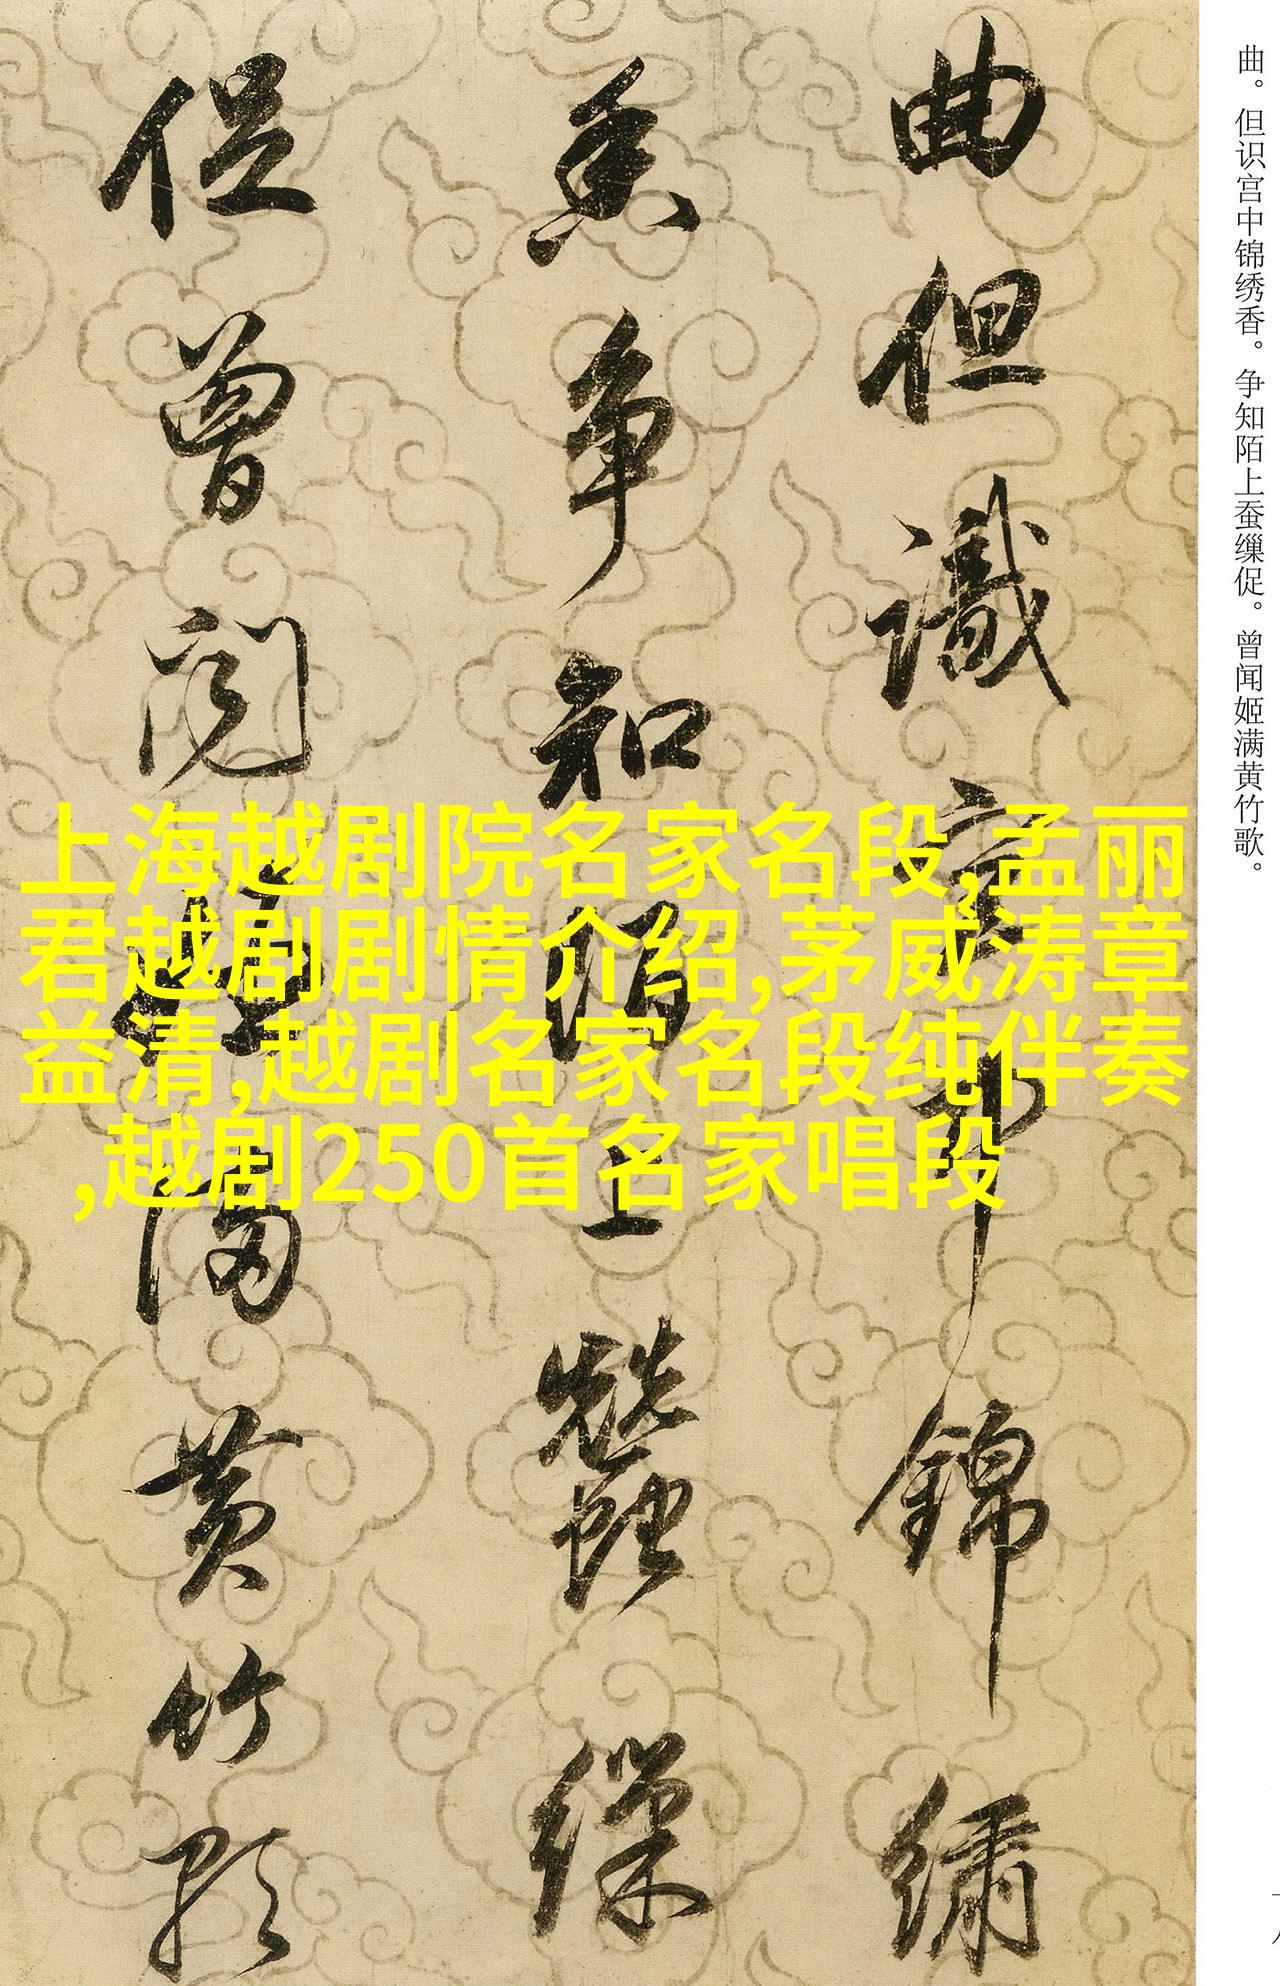 曲但識宮中錦繡
香争知陌上蠶繅
促曾闻姬满黄竹歌
曲。但识宫中锦绣香。争知陌上蚕缫促。曾闻姬满黄竹歌。
上海越剧院名家名段,孟丽
君越剧剧情介绍,茅威涛章
益清,越剧名家名段纯伴奏
,越剧250首名家唱段